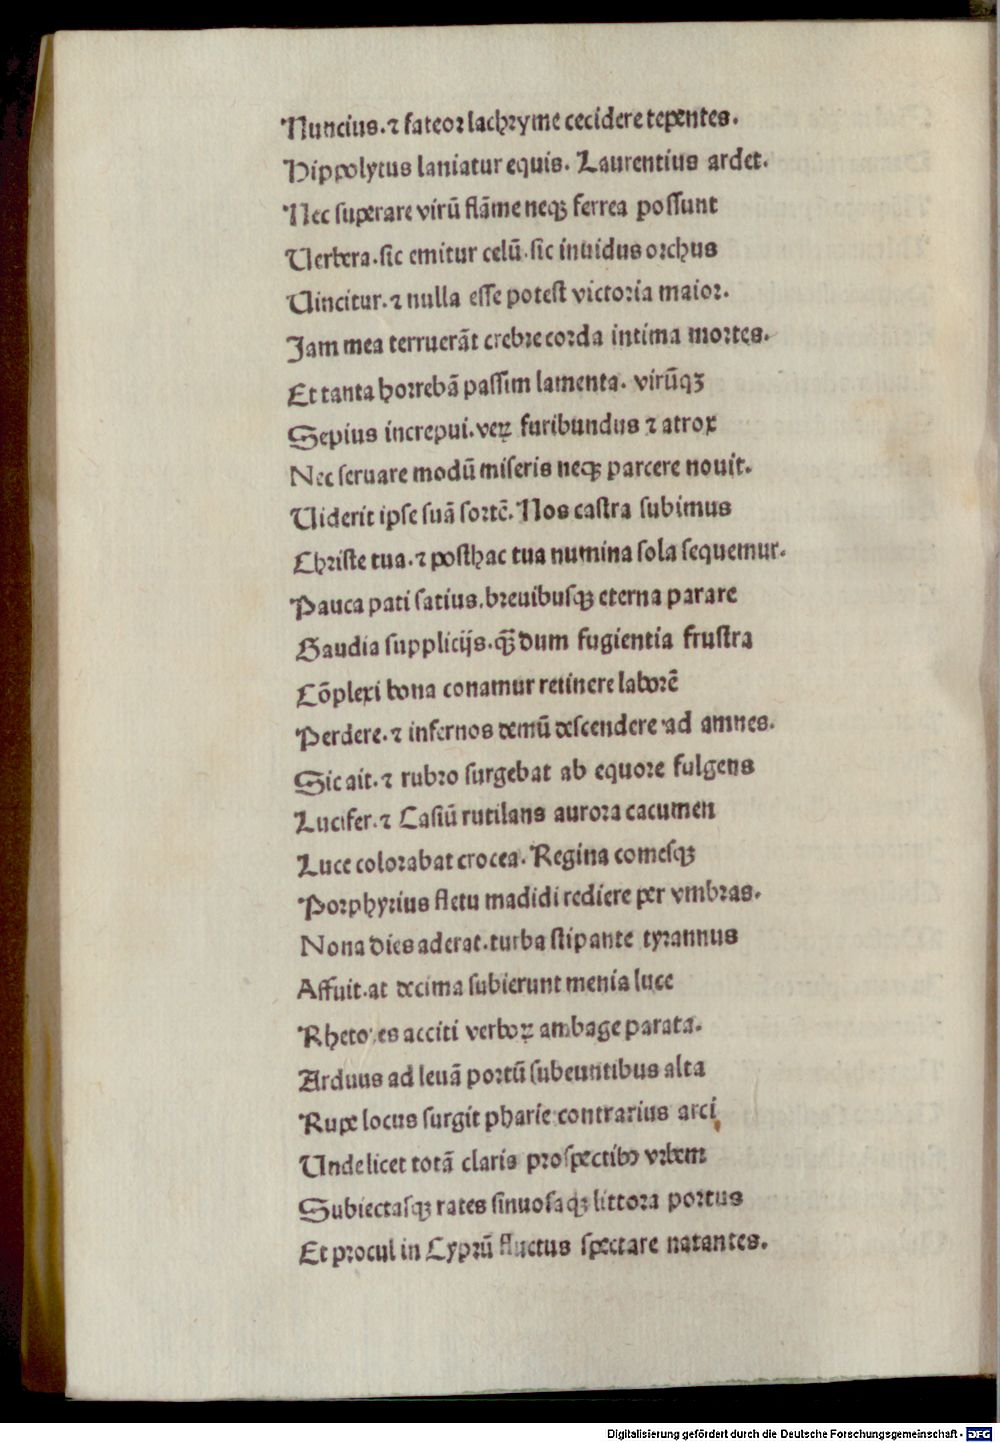 Nuncius. ⁊ fateoꝛ lachꝛyme cecidere tepentes.
Hippolytus laniatur equis. Laurentius ardet.
Nec ſuperare virū flāme neqꝫ ferrea poſſunt
Uerbera. ſic emitur celū. ſic inuidus oꝛchus
Uincitur. ⁊ nulla eſſe poteſt victoꝛia maioꝛ.
Jam mea terruerāt crebꝛe coꝛda intima moꝛtes.
Et tanta hoꝛrebā paſſim lamenta. virūqꝫ
Sepius increpui. veꝝ furibundus ⁊ atrox
Nec ſeruare modū miſeris neqꝫ parcere nouit.
Uiderit ipſe ſuā ſoꝛtē. Nos caſtra ſubimus
Chꝛiſte tua. ⁊ poſthac tua numina ſola ſequemur.
Pauca pati ſatius. bꝛeuibuſqꝫ eterna parare
Gaudia ſupplicijs. qꝫ̄ dum fugientia fruſtra
Cōplexi bona conamur retinere laboꝛē
Perdere. ⁊ infernos demū deſcendere ad amnes.
Sic ait. ⁊ rubꝛo ſurgebat ab equoꝛe fulgens
Lucifer. ⁊ Caſiū rutilans auroꝛa cacumen
Luce coloꝛabat crocea. Regina comeſqꝫ
Poꝛphyꝛius fletu madidi rediere per vmbꝛas.
Nona dies aderat. turba ſtipante tyꝛannus
Affuit. at decima ſubierunt menia luce
Rhetoꝛes acciti verboꝝ ambage parata.
Arduus ad leuā poꝛtū ſubeuntibus alta
Rupe locus ſurgit pharie contrarius arci
Unde licet totā claris pꝛoſpectibꝰ vꝛbem
Subiectaſqꝫ rates ſinuoſaqꝫ littoꝛa poꝛtus
Et pꝛocul in Cypꝛū fluctus ſpectare natantes.
Digitalisierung gefördert durch die Deutsche Forschungsgemeinschaft - DFG